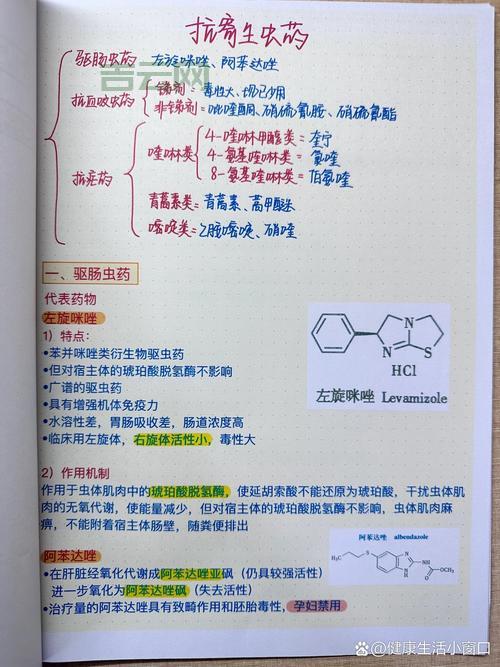 抗寄生虫药
驱肠虫药 左旋咪唑、阿苯达唑
抗血吸虫药 锑剂:毒性大、现已少用
非锑剂=吡喹酮、硝硫氰胺、硝硫氰酯
抗疟药
喹啉类 4-喹啉甲醇类=奎宁
4-氨基喹啉类=氯喹
8-氨基喹啉类=伯氨喹
青蒿素类=青蒿素、蒿甲醚
嘧啶类=乙胺嘧啶、硝喹
苦云网
一、驱肠虫药
代表药物
左旋咪唑
1)特点:
•苯并咪唑类衍生物驱虫药
•但对宿主体的琥珀酸脱氢酶不影响
•广谱的驱虫药
•具有增强机体免疫力
•水溶性差,胃肠吸收差,肠道浓度高
•临床用左旋体,右旋体活性小,毒性大
N
N
S
HCl
左旋咪唑 Levamizole
2)作用机制
作用于虫体肌肉中的琥珀酸脱氢酶,使延胡索酸不能还原为琥珀酸,干扰虫体肌
肉的无氧代谢,使能量减少,但对宿主体的琥珀酸脱氢酶不影响,虫体肌肉麻
痹,不能附着宿主体肠壁,随粪便排出
阿苯达唑
•在肝脏经氧化代谢成阿苯达唑亚砜(仍具较强活性)
进一步氧化为阿苯达唑砜(失去活性)
•治疗量的阿苯达唑具有致畸作用和胚胎毒性,孕妇禁用
阿苯达唑 albendazole
H₃C
S
N
NH
O
OCH₃
@健康生活小窗口